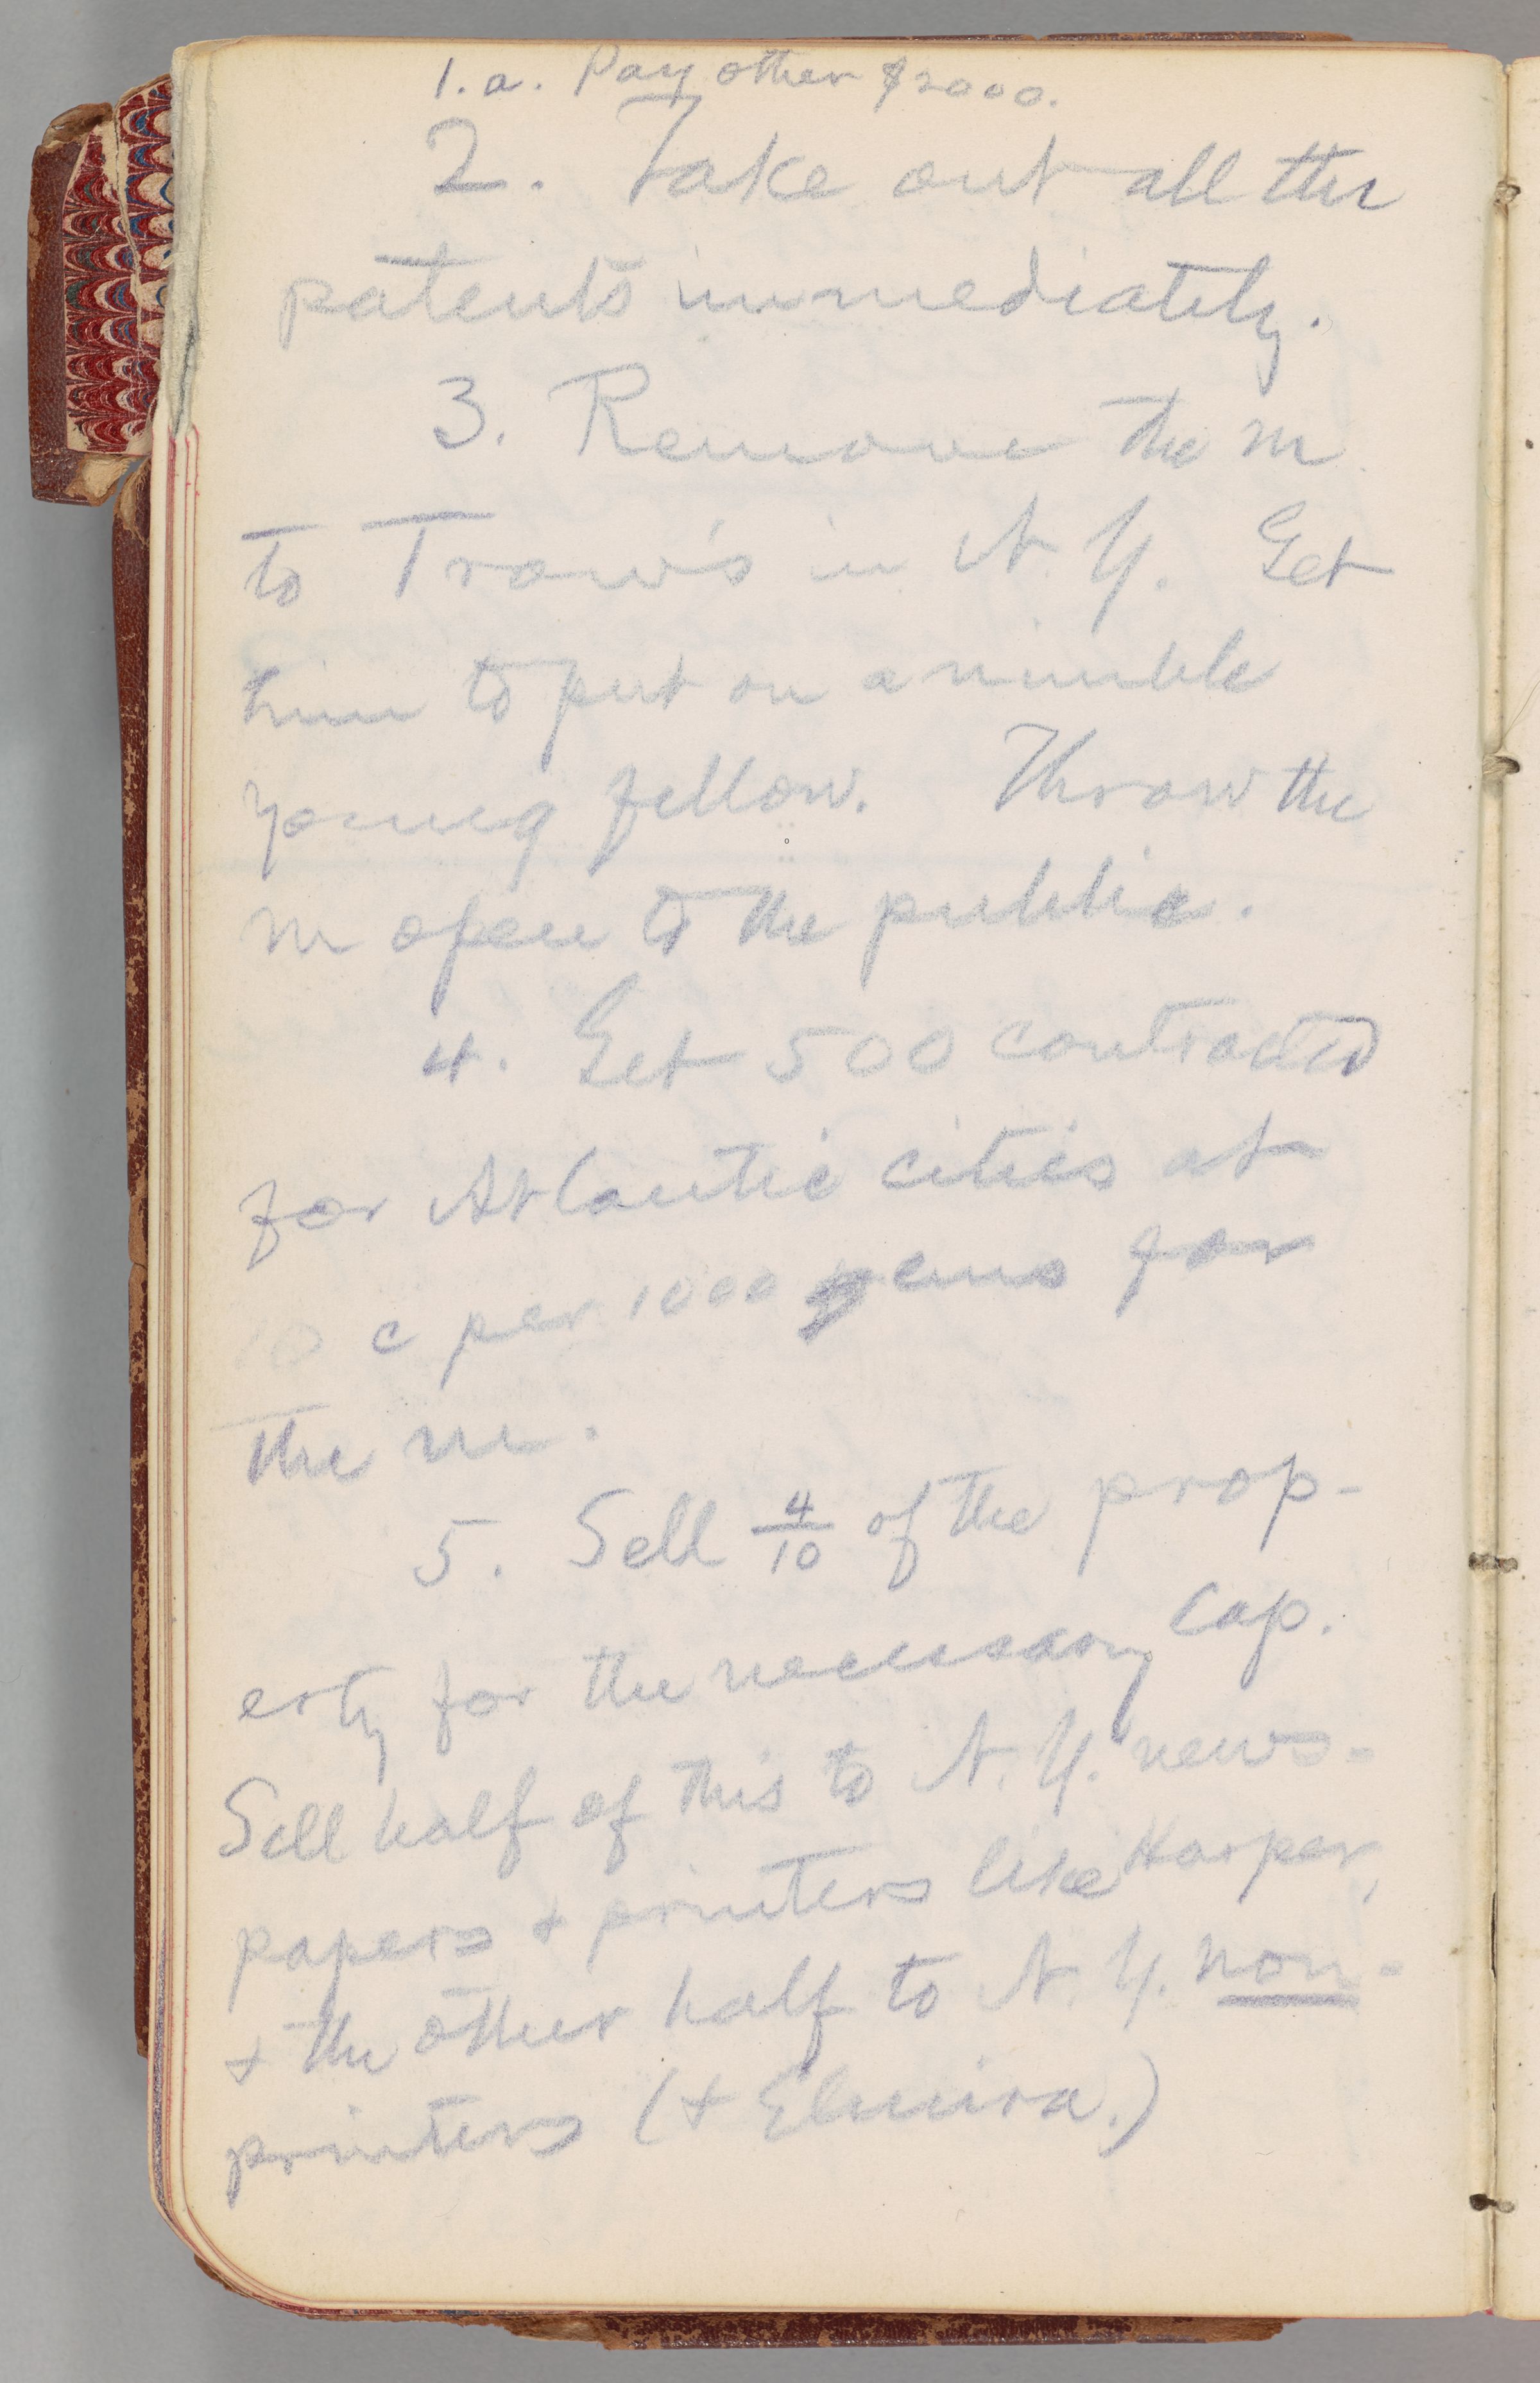 1. a. Pay other $2000.
2. Take out all the
patents immediately.
3. Remove the m
to Trow's in N. Y. Get
him to put on a nimble
young fellow. Throw the
m open to the public.
4. Get 500 contracted
for Atlantic cities at
10 c per 1000 ems for
the m.
5. Sell 4/10 of the prop-
erty for the necessary cap.
Sell half of this to N. Y. news-
papers & printers like Harper,
& the other half to N. Y. non-
printers (& Elmira.)